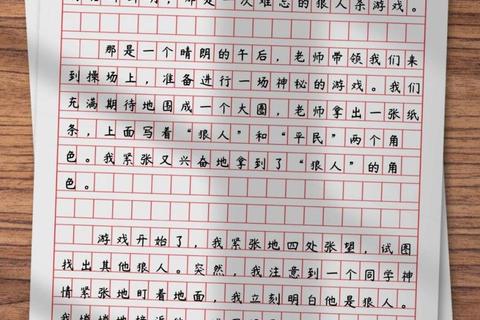 那是一次难忘的狼人杀游戏。
那是一个晴朗的午后，老师带领我们来
到操场上，准备进行一场神秘的游戏。我们
充满期待地围成一个大圈，老师拿出一张纸
条，上面写着“狼人”和“平民”两个角
色。我紧张又兴奋地拿到了“狼人”的角
色。
游戏开始了，我紧张地四处张望，试图
找出其他狼人。突然，我注意到一个同学神
情紧张地盯着地面，我立刻明白他是狼人。